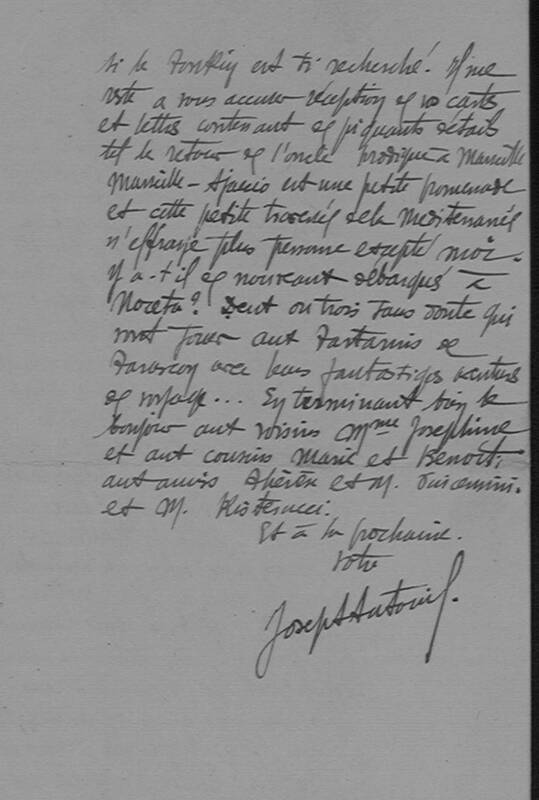 si le Tonkin est si recherché. Il me
reste a vous accuser réception de vos cartes
et lettres contenant de piquants détails
tel le retour de l'oncle prodigue à Marseille
Marseille - Ajaccio est une petite promenade
et cette petite traversée de la Mediterranée
n'effraye plus personne excepté moi.
Y a-t-il de nouveaux débarqués à
Noceta? Deux ou trois sans doute qui
vont jouer aux Tartarins de
Tarascon avec leurs fantastiques aventures
de voyage... En terminant bien le
bonjour aux voisins Mme Josephine
et aux cousins Marie et Benoit;
aux amis et M.
et M. Risterucci.
Et à la prochaine.
Votre
Joseph Antoine.